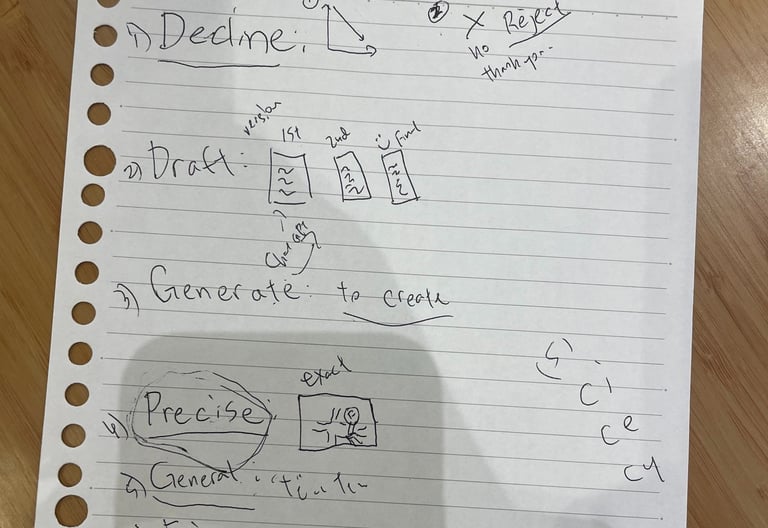 1) Decline:
② X Reject
no
thank you..
version
1st 2nd Final
2) Draft:
Chat GPT
3) Generate: to create
exact
4) Precise:
5) General:
ci
ce
cy